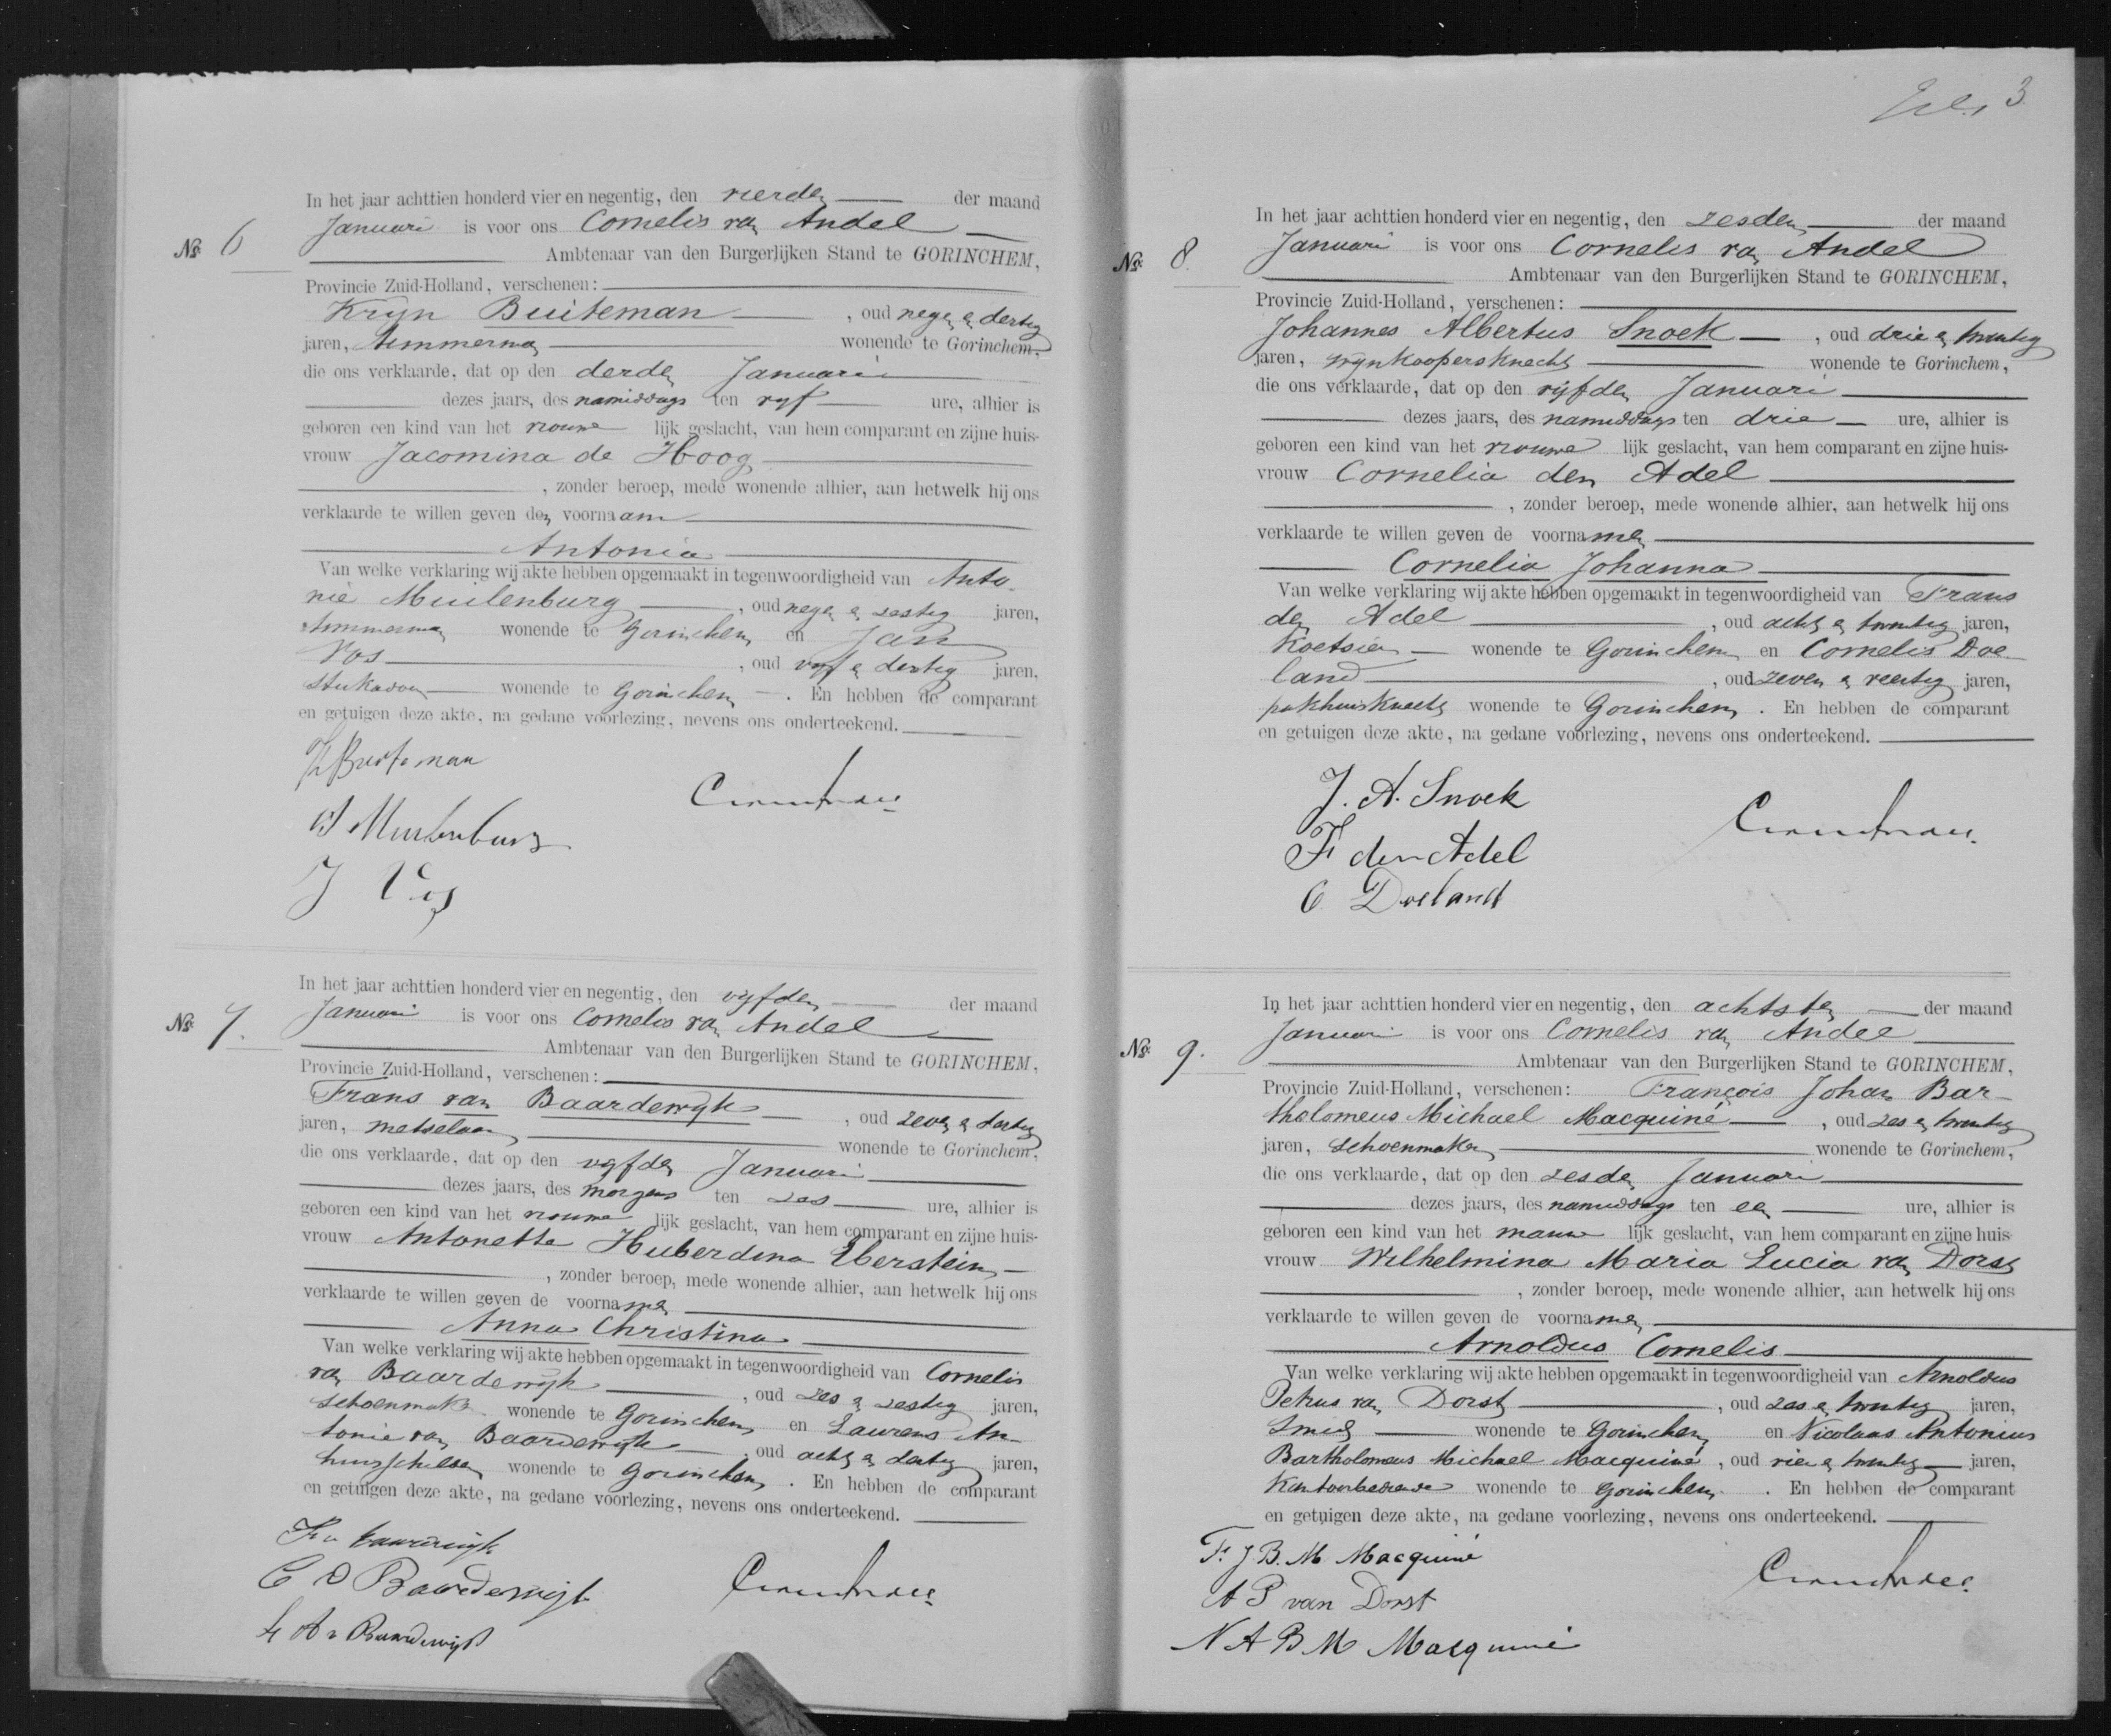 3
No. 6
In het jaar achttien honderd vier en negentig, den vierden der maand
Januari is voor ons Cornelis van Andel
Ambtenaar van den Burgerlijken Stand te GORINCHEM,
Provincie Zuid-Holland, verschenen:
Krijn Buiteman, oud negen en dertig
jaren, timmerman wonende te Gorinchem,
die ons verklaarde, dat op den derden Januari
dezes jaars, des namiddags ten vijf ure, alhier is
geboren een kind van het vrouwelijk geslacht, van hem comparant en zijne huis-
vrouw Jacomina de Hoog
, zonder beroep, mede wonende alhier, aan hetwelk hij ons
verklaarde te willen geven den voornaam
Antonia
Van welke verklaring wij akte hebben opgemaakt in tegenwoordigheid van Anto-
nie Muilenburg, oud negen en zestig jaren,
timmerman wonende te Gorinchem en Jan
Vos, oud vijf en dertig jaren,
stukadoor wonende te Gorinchem. En hebben de comparant
en getuigen deze akte, na gedane voorlezing, nevens ons onderteekend.
K Buiteman
A Muilenburg
J Vos
No. 7.
In het jaar achttien honderd vier en negentig, den vijfden der maand
Januari is voor ons Cornelis van Andel
Ambtenaar van den Burgerlijken Stand te GORINCHEM,
Provincie Zuid-Holland, verschenen:
Frans van Baardewijk, oud zeven en dertig
jaren, metselaar wonende te Gorinchem,
die ons verklaarde, dat op den vijfden Januari
dezes jaars, des morgens ten zes ure, alhier is
geboren een kind van het vrouwelijk geslacht, van hem comparant en zijne huis-
vrouw Antonetta Huberdina Eberstein
, zonder beroep, mede wonende alhier, aan hetwelk hij ons
verklaarde te willen geven de voornamen
Anna Christina
Van welke verklaring wij akte hebben opgemaakt in tegenwoordigheid van Cornelis
van Baardewijk, oud zes en zestig jaren,
schoenmaker wonende te Gorinchem en Laurens An-
tonie van Baardewijk, oud acht en dertig jaren,
huisschilder wonende te Gorinchem. En hebben de comparant
en getuigen deze akte, na gedane voorlezing, nevens ons onderteekend.
F v Baardewijk
C v Baardewijk
L A v Baardewijk
No. 8.
In het jaar achttien honderd vier en negentig, den zesden der maand
Januari is voor ons Cornelis van Andel
Ambtenaar van den Burgerlijken Stand te GORINCHEM,
Provincie Zuid-Holland, verschenen:
Johannes Albertus Snoek, oud drie en twintig
jaren, wijnkoopersknecht wonende te Gorinchem,
die ons verklaarde, dat op den vijfden Januari
dezes jaars, des namiddags ten drie ure, alhier is
geboren een kind van het vrouwelijk geslacht, van hem comparant en zijne huis-
vrouw Cornelia den Adel
, zonder beroep, mede wonende alhier, aan hetwelk hij ons
verklaarde te willen geven de voornamen
Cornelia Johanna
Van welke verklaring wij akte hebben opgemaakt in tegenwoordigheid van Frans
den Adel, oud acht en twintig jaren,
koetsier wonende te Gorinchem en Cornelis Doe-
land, oud zeven en veertig jaren,
pakhuisknecht wonende te Gorinchem. En hebben de comparant
en getuigen deze akte, na gedane voorlezing, nevens ons onderteekend.
J. A. Snoek
F den Adel
C Doeland
No. 9.
In het jaar achttien honderd vier en negentig, den achtsten der maand
Januari is voor ons Cornelis van Andel
Ambtenaar van den Burgerlijken Stand te GORINCHEM,
Provincie Zuid-Holland, verschenen: François Johan Bar-
tholomeus Michael Macquiné, oud zes en twintig
jaren, schoenmaker wonende te Gorinchem,
die ons verklaarde, dat op den zesden Januari
dezes jaars, des namiddags ten een ure, alhier is
geboren een kind van het mannelijk geslacht, van hem comparant en zijne huis-
vrouw Wilhelmina Maria Lucia van Dorst
, zonder beroep, mede wonende alhier, aan hetwelk hij ons
verklaarde te willen geven de voornamen
Arnoldus Cornelis
Van welke verklaring wij akte hebben opgemaakt in tegenwoordigheid van Arnoldus
Petrus van Dorst, oud zes en twintig jaren,
smid wonende te Gorinchem en Nicolaas Antonius
Bartholomeus Michael Macquiné, oud vier en twintig jaren,
kantoorbediende wonende te Gorinchem. En hebben de comparant
en getuigen deze akte, na gedane voorlezing, nevens ons onderteekend.
F. J B. M Macquiné
A P van Dorst
N A B M Macquiné